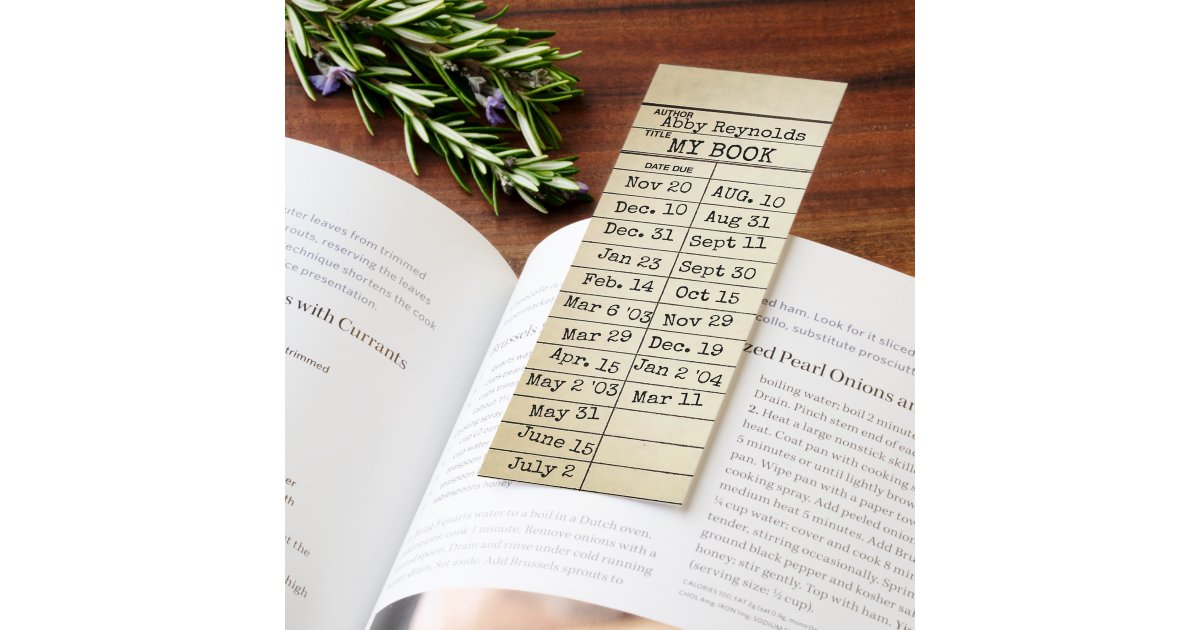 AUTHOR
Abby Reynolds
TITLE
MY BOOK
DATE DUE
Nov 20
Dec. 10
Dec. 31
Jan 23
Feb. 14
Mar 6 '03
Mar 29
Apr. 15
May 2 '03
May 31
June 15
July 2
AUG. 10
Aug 31
Sept 11
Sept 30
Oct 15
Nov 29
Dec. 19
Jan 2 '04
Mar 11
uter leaves from trimmed
routs, reserving the leaves
echnique shortens the cook
ce presentation.
s with Currants
trimmed
er
th
t the
high
quarts wat
cups pear
cups trimm
(about 1½
Cooking spray
cup (2 our
teaspoon
teaspoon
tablespoons honey
Bring 3 quarts water to a boil in a Dutch oven.
onions; cook 1 minute. Remove onions with a
spoon. Drain and rinse under cold running
water. Drain. Set aside. Add Brussels sprouts to
ed ham. Look for it sliced
collo, substitute prosciutt
zed Pearl Onions an
boiling water; boil 2 minute
Drain. Pinch stem end of eac
2. Heat a large nonstick skill
heat. Coat pan with cooking s
5 minutes or until lightly brow
pan. Wipe pan with a paper tow
cooking spray. Add peeled onion
medium heat 5 minutes. Add Bru
¼ cup water; cover and cook 8 min
tender, stirring occasionally. Sprin
ground black pepper and kosher sal
honey; stir gently. Top with ham. Yi
(serving size: ½ cup).
CALORIES 100; FAT 2g (sat 0.9g, mono 0
CHOL 4mg; IRON 1mg; SODIUM